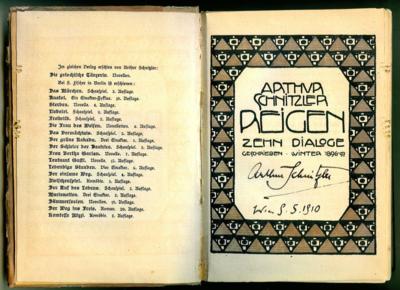 Im gleichen Verlag erschien von Arthur Schnitzler:
Die griechische Tänzerin. Novellen.
Bei S. Fischer in Berlin ist erschienen:
Das Märchen. Schauspiel. 2. Auflage.
Anatol. Ein Einakter-Zyklus. Auflage.
Sterben. Novelle. Auflage.
Liebelei. Schauspiel. Auflage.
Freiwild. Schauspiel. 2. Auflage.
Die Frau des Weisen. Novelletten. Auflage.
Das Vermächtnis. Schauspiel. 2. Auflage.
Der grüne Kakadu. Drei Einakter. Auflage.
Der Schleier der Beatrice. Schauspiel. Auflage.
Frau Bertha Garlan. Novelle. Auflage.
Leutnant Gustl. Novelle. Auflage.
Lebendige Stunden. Vier Einakter. Auflage.
Der einsame Weg. Schauspiel. Auflage.
Zwischenspiel. Komödie. Auflage.
Der Ruf des Lebens. Schauspiel. Auflage.
Marionetten. Drei Einakter. 2. Auflage.
Dämmerseelen. Novellen. Auflage.
Der Weg ins Freie. Roman. Auflage.
Komtesse Mizzi. Komödie. Auflage.
ARTHUR
SCHNITZLER
REIGEN
ZEHN DIALOGE
GESCHRIEBEN WINTER 1896-97
Arthur Schnitzler
Wien 1910